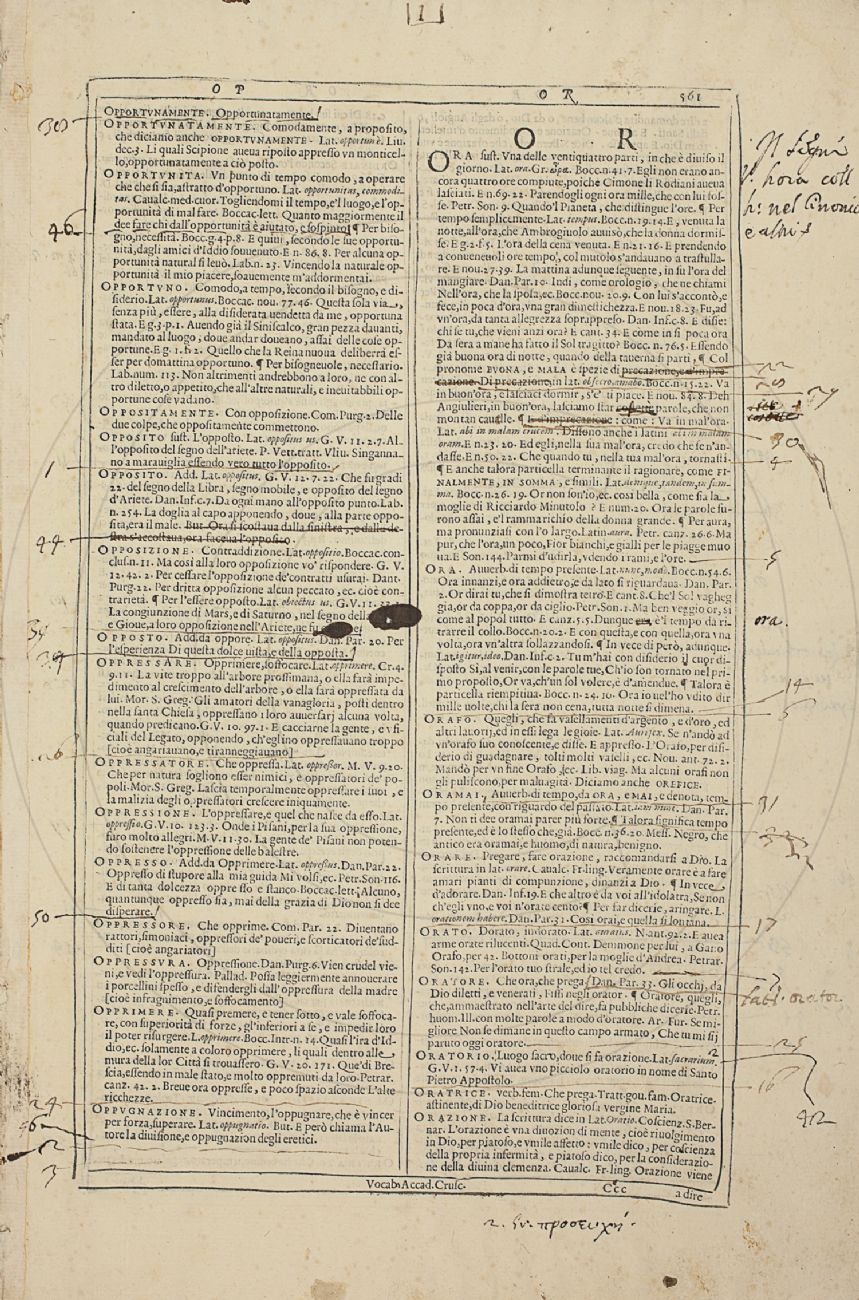 [1]
OP
OR
561
OPPORTVNAMENTE. Opportunatamente.
OPPORTVNATAMENTE. Comodamente, a proposito,
che diciamo anche OPPORTVNAMENTE. Lat. opportunè. Liu.
dec.3. Li quali Scipione aueua riposto appresso vn monticel-
lo, opportunatamente a ciò posto.
OPPORTVNITA. Vn punto di tempo comodo, a operare
che che si sia, astratto d'opportuno. Lat. opportunitas, commodi-
tas. Caualc. med. cuor. Togliendomi il tempo, e'l luogo, e l'op-
portunità di mal fare. Boccac. lett. Quanto maggiormente il
dee fare chi dall'opportunità è aiutato, e sospinto? ¶ Per biso-
gno, necessità. Bocc. g. 4. p. 8. E quiui, secondo le sue opportu-
nità, dagli amici d'Iddio souuenuto. E n. 86. 8. Per alcuna op-
portunità natural si leuò. Lab. n. 23. Vincendo la naturale op-
portunità il mio piacere, soauemente m'addormentai.
OPPORTVNO. Comodo, a tempo, secondo il bisogno, e di-
siderio. Lat. opportunus. Boccac. nou. 77. 46. Questa sola via,
senza più, essere, alla disiderata uendetta da me, opportuna
stata. E g. 3. p. 1. Auendo già il Siniscalco, gran pezza dauanti,
mandato al luogo, doue andar doueano, assai delle cose op-
portune. E g. 1. f. 2. Quello che la Reina nuoua delibererà es-
ser per domattina opportuno. ¶ Per bisogneuole, necessario.
Lab. num. 113. Non altrimenti andrebbono a loro, ne con al-
tro diletto, o appetito, che all'altre naturali, e ineuitabili op-
portune cose vadano.
OPPOSITAMENTE. Con opposizione. Com. Purg. 2. Delle
due colpe, che oppositamente commettono.
OPPOSITO sust. L'opposto. Lat. oppositus us. G. V. 11. 2. 7. Al-
l'opposito del segno dell'ariete. P. Vett. tratt. Vliu. S'inganna-
no a marauiglia essendo vero tutto l'opposito.
OPPOSITO. Add. Lat. oppositus. G. V. 12. 7. 22. Che sur gradi
22. del segno della Libra, segno mobile, e opposito del segno
d'Ariete. Dan. Inf. c. 7. Da ogni mano all'opposito punto. Lab.
n. 254. La doglia al capo apponendo, doue, alla parte oppo-
sita, era il male. But. Ora si scostaua dalla sinistra, e dalla de-
stra s'accostaua, ora faceua l'opposito.
OPPOSIZIONE. Contraddizione. Lat. oppositio. Boccac. con-
clus. n. 11. Ma così alla loro opposizione vo' rispondere. G. V.
12. 42. 2. Per cessare l'opposizione de'contratti usurai. Dant.
Purg. 22. Per dritta opposizione alcun peccato, ec. cioè con-
trarietà. ¶ Per l'essere opposto. Lat. obiectus us. G. V. 11.
La congiunzione di Mars, e di Saturno, nel segno della
e Gioue, a loro opposizione nell'Ariete, ne fu
OPPOSTO. Add. da opporre. Lat. oppositus. Dan. Par. 20. Per
l'esperienza Di questa dolce uista, e della opposta.
OPPRESSARE. Opprimere, soffocare. Lat. opprimere. Cr. 4.
9. 11. La vite troppo all'arbore prossimana, o ella farà impe-
dimento al crescimento dell'arbore, o ella sarà oppressata da
lui. Mor. S. Greg. Gli amatori della vanagloria, posti dentro
nella santa Chiesa, oppressano i loro auuersarj alcuna volta,
quando predicano. G. V. 10. 97. 1. E cacciarne la gente, e vfi-
ciali del Legato, opponendo, ch'eglino oppressauano troppo
[cioè angariauano, e tiranneggiauano]
OPPRESSATORE. Che oppressa. Lat. oppressor. M. V. 9. 20.
Che per natura sogliono esser nimici, e oppressatori de' po-
poli. Mor. S. Greg. Lascia temporalmente oppressare i suoi, e
la malizia degli oppressatori crescere iniquamente.
OPPRESSIONE. L'oppressare, e quel che nasce da esso. Lat.
oppressio. G. V. 10. 123. 3. Onde i Pisani, per la sua oppressione,
furo molto allegri. M. V. 11. 30. La gente de' Pisani non poten-
do sostenere l'oppressione delle balestre.
OPPRESSO. Add. da Opprimere. Lat. oppressus. Dan. Par. 22.
Oppresso di stupore alla mia guida Mi volsi, ec. Petr. Son. 116.
E di tanta dolcezza oppresso e stanco. Boccac. lett. Alcuno,
quantunque oppresso sia, mai della grazia di Dio non si dee
disperare.
OPPRESSORE. Che opprime. Com. Par. 22. Diuentano
rattori, simoniaci, oppressori de' poueri, e scorticatori de' sud-
diti [cioè angariatori]
OPPRESSVRA. Oppressione. Dan. Purg. 6. Vien crudel vie-
ni, e vedi l'oppressura. Pallad. Possa leggiermente annouerare
i porcellini spesso, e difendergli dall'oppressura della madre
[cioè infragnimento, e soffocamento]
OPPRIMERE. Quasi premere, e tener sotto, e vale soffoca-
re, con superiorità di forze, gl'inferiori a se, e impedir loro
il poter risurgere. L. opprimere. Bocc. Intr. n. 14. Quasi l'ira d'Id-
dio, ec. solamente a coloro opprimere, li quali dentro alle
mura della lor Città si trouassero. G. V. 20. 171. Que' di Bre-
scia, essendo in male stato, e molto oppremuti da loro. Petrar.
canz. 42. 2. Breue ora oppresse, e poco spazio asconde L'alte
ricchezze.
OPPUGNAZIONE. Vincimento, l'oppugnare, che è vincer
per forza, superare. Lat. oppugnatio. But. E però chiama l'Au-
tore la diuisione, e oppugnazion degli eretici.
O R
ORA sust. Vna delle ventiquattro parti, in che è diuiso il
giorno. Lat. ora. Gr. ὥρα. Bocc. n. 41. 7. Egli non erano an-
cora quattro ore compiute, poiche Cimone li Rodiani aueua
lasciati. E n. 69. 22. Parendogli ogni ora mille, che con lui fos-
se. Petr. Son. 9. Quando'l Pianeta, che distingue l'ore. ¶ Per
tempo semplicemente. Lat. tempus. Bocc. n. 19. 14. E, venuta la
notte, all'ora, che Ambrogiuolo auuisò, che la donna dormis-
se. E g. 2. f. 5. L'ora della cena venuta. E n. 21. 16. E prendendo
a conueneuoli ore tempo, col mutolo s'andauano a trastulla-
re. E nou. 27. 39. La mattina adunque seguente, in su l'ora del
mangiare. Dan. Par. 10. Indi, come orologio, che ne chiami
Nell'ora, che la sposa, ec. Bocc. nou. 20. 9. Con lui s'accontò, e
fece, in poca d'ora, vna gran dimestichezza. E nou. 18. 23. Fu, ad
vn'ora, da tanta allegrezza soprappreso. Dan. Inf. c. 8. E disse:
chi se tu, che vieni anzi ora? E cant. 34. E come in sì poca ora
Da sera a mane ha fatto il Sol tragitto? Bocc. n. 76. 5. Essendo
già buona ora di notte, quando della tauerna si partì, ¶ Col
pronome BVONA, e MALA è spezie di precazione, e d'impre-
cazione. Di precazione, in lat. obsecro, amabo. Bocc. n. 15. 22. Va
in buon'ora, e lasciaci dormir, s'e' ti piace. E nou. 84. 8. Deh
Angiulieri, in buon'ora, lasciamo star coteste parole, che non
montan cauelle. ¶ E d'imprecazione: come: Va in mal'ora.
Lat. abi in malam crucem. Dissono anche i latini abi in malam
oram. E n. 23. 20. Ed egli, nella sua mal'ora, credo che se n'an-
dasse. E n. 50. 22. Che quando tu, nella tua mal'ora, tornasti.
¶ E anche talora particella terminante il ragionare, come FI-
NALMENTE, IN SOMMA, e simili. Lat. denique, tandem, in sum-
ma. Bocc. n. 26. 19. Or non son'io, ec. così bella, come sia la
moglie di Ricciardo Minutolo? E num. 20. Ora le parole fu-
rono assai, e'l rammarichio della donna grande. ¶ Per aura,
ma pronunziasi con l'o largo. Latin. aura. Petr. canz. 26. 6. Ma
pur, che l'ora, un poco, Fior bianchi, e gialli per le piagge muo
ua. E Son. 144. Parmi d'udirla, vdendo i rami, e l'ore.
ORA. Auuerb. di tempo presente. Lat. nunc, modo. Bocc. n. 54. 6.
Ora innanzi, e ora addietro, e da lato si riguardaua. Dan. Par.
2. Or dirai tu, che si dimostra tetro. E cant. 8. Che'l Sol vagheg
gia, or da coppa, or da ciglio. Petr. Son. 1. Ma ben veggio or, sì
come al popol tutto. E canz. 5. 5. Dunque ora, è'l tempo da ri-
trarre il collo. Bocc. n. 20. 2. E con questa, e con quella, ora vna
volta, ora vn'altra sollazzandosi. ¶ In vece di però, adunque.
Lat. igitur, ideo. Dan. Inf. c. 2. Tu m'hai con disiderio il cuor di-
sposto Sì, al venir, con le parole tue, Ch'io son tornato nel pri-
mo proposto, Or va, ch'un sol volere, è d'amendue. ¶ Talora è
particella riempitiua. Bocc. n. 24. 10. Ora io nel'ho vdito dir
mille uolte, chi la sera non cena, tutta notte si dimena.
ORAFO. Quegli, che fa vasellamenti d'argento, e d'oro, ed
altri lauorij, ed in essi lega le gioie. Lat. Aurifex. Se n'andò ad
vn'orafo suo conoscente, e disse. E appresso. L'Orafo, per disi-
derio di guadagnare, tolti molti vaselli, ec. Nou. ant. 72. 2.
Mandò per vn fine Orafo, ec. Lib. viag. Ma alcuni orafi non
gli puliscono, per malvagità. Diciamo anche OREFICE.
ORAMAI. Auuerb. di tempo, da ORA, e MAI, e denota, tem-
po presente, con riguardo del passato. Lat. iam nunc. Dan. Par.
7. Non ti dee oramai parer più forte. ¶ Talora significa tempo
presente, ed è lo stesso che, già. Bocc. n. 36. 20. Mess. Negro, che
antico era oramai, e huomo, di natura, benigno.
ORARE. Pregare, fare orazione, raccomandarsi a Dio. La
scrittura in lat. orare. Caualc. Fr. ling. Veramente orare è a fare
amari pianti di compunzione, dinanzi a Dio. ¶ In vece
d'adorare. Dan. Inf. 19. E che altro è da voi all'idolatra, Se non
ch'egli vno, e voi n'orate cento? ¶ Per far dicerie, aringare. L.
orationem habere. Dan. Par. 31. Così orai, e quella sì lontana.
ORATO. Dorato, indorato. Lat. oratus. N. ant. 92. 2. E auea
arme orate rilucenti. Quad. Cont. Demmone per lui, a Gano
Orafo, per 42. Bottoni orati, per la moglie d'Andrea. Petrar.
Son. 142. Per l'orato tuo strale, ed io tel credo.
ORATORE. Che ora, che prega. Dan. Par. 33. Gli occhj, da
Dio diletti, e venerati, Fissi negli orator. ¶ Oratore, quegli,
che, ammaestrato nell'arte del dire, fa pubbliche dicerie. Petr.
huom. Ill. con molte parole a modo d'oratore. Ar. Fur. Se mi-
gliore Non se dimane in questo campo armato, Che tu mi sij
paruto oggi oratore.
ORATORIO. Luogo sacro, doue si fa orazione. Lat. sacrarium.
G. V. 1. 57. 4. Vi auea vno picciolo oratorio in nome di Santo
Pietro Appostolo.
ORATRICE. verb. fem. Che prega. Tratt. gou. fam. Oratrice.
astinente, di Dio beneditrice gloriosa vergine Maria.
ORAZIONE. La scrittura dice in Lat. Oratio. Coscienz. S. Ber-
nar. L'orazione è vna diuozion di mente, cioè riuolgimento
in Dio, per piatoso, e vmile affetto: vmile dico, per coscienza
della propria infermità, e piatoso dico, per la considerazio-
ne della diuina clemenza. Caualc. Fr. ling. Orazione viene
Vocab. Accad. Crusc.
Ccc
a dire
30
46
1
44
34
39
50
24
46
2
3
22
29
30
4
5
ora.
14
5
31
17
7
orator.
25
16
42
2. Gr. προσευχή.